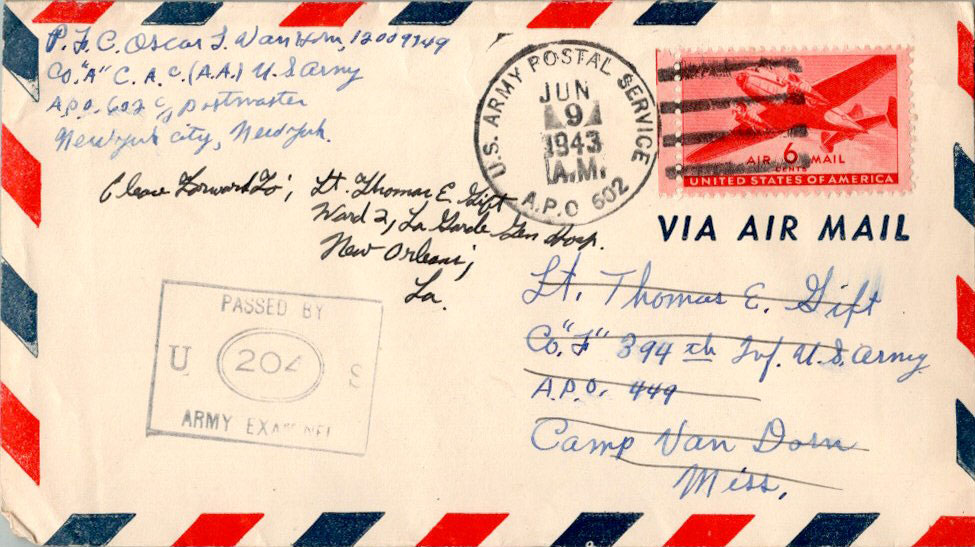 P.F.C. Oscar J. Van Horn, 12009949
Co. "A" C.A.C. (A.A.) U.S Army
A.P.O. 602 c/o postmaster
New york city, New york.
U.S. ARMY POSTAL SERVICE
JUN
9
1943
A.M.
A.P.O 602
AIR 6 MAIL
CENTS
UNITED STATES OF AMERICA
VIA AIR MAIL
Please Forward To; Lt. Thomas E. Gift
Ward 2, La Garde Gen Hosp.
New Orleans;
La.
PASSED BY
U 204 S
ARMY EXAMINER
Lt. Thomas E. Gift
Co. "F" 394 th Inf. U.S. Army
A.P.O. 449
Camp Van Dorn
Miss.